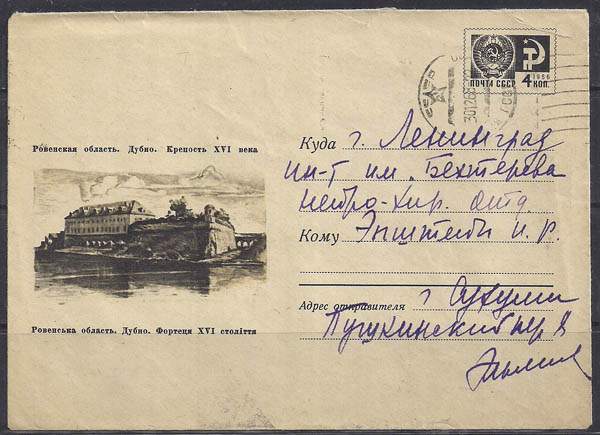 ПОЧТА СССР
1966
4 КОП.
301268
Ровенская область. Дубно. Крепость XVI века
Ровенська область. Дубно. Фортеця XVI століття
Куда г. Ленинград
ин-т им. Бехтерева
нейро-хир. отд
Кому Эпштейн И. Р.
Адрес отправителя г Сухуми
Пушкинский пер